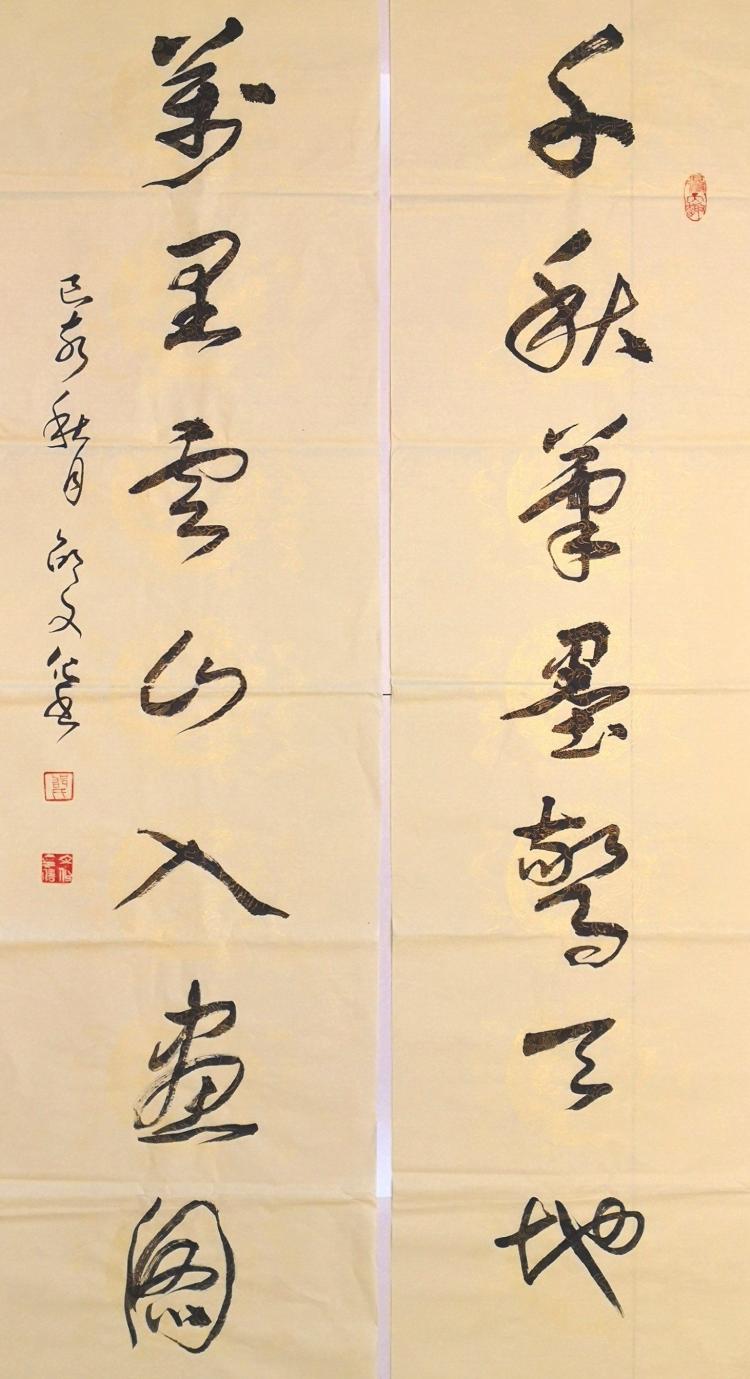 千秋筆墨驚天地
萬里雲山入畫圖
己亥秋月